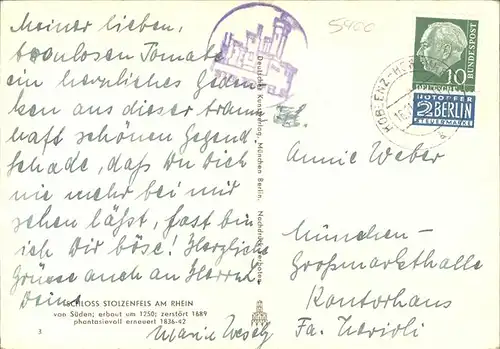 Meiner lieben,
treulosen Tomate
ein herzliches Geden
ken aus dieser traum
haft schönen Gegend.
Schade, daß Du Dich
nie mehr bei mir
sehen läßt, fast bin
ich Dir böse! Herzliche
Grüsse auch an Herrn
Deine
SCHLOSS STOLZENFELS AM RHEIN
von Süden; erbaut um 1250; zerstört 1689
phantasievoll erneuert 1836-42
3
Marie
Deutscher Kunstverlag, München Berlin. Nachdruck verboten
5400
KOBLENZ
10
DEUTSCHE BUNDESPOST
NOTOPFER
2 BERLIN
STEUERMARKE
Annie Weber
München-
Großmarkthalle
Kontorhaus
Fa.